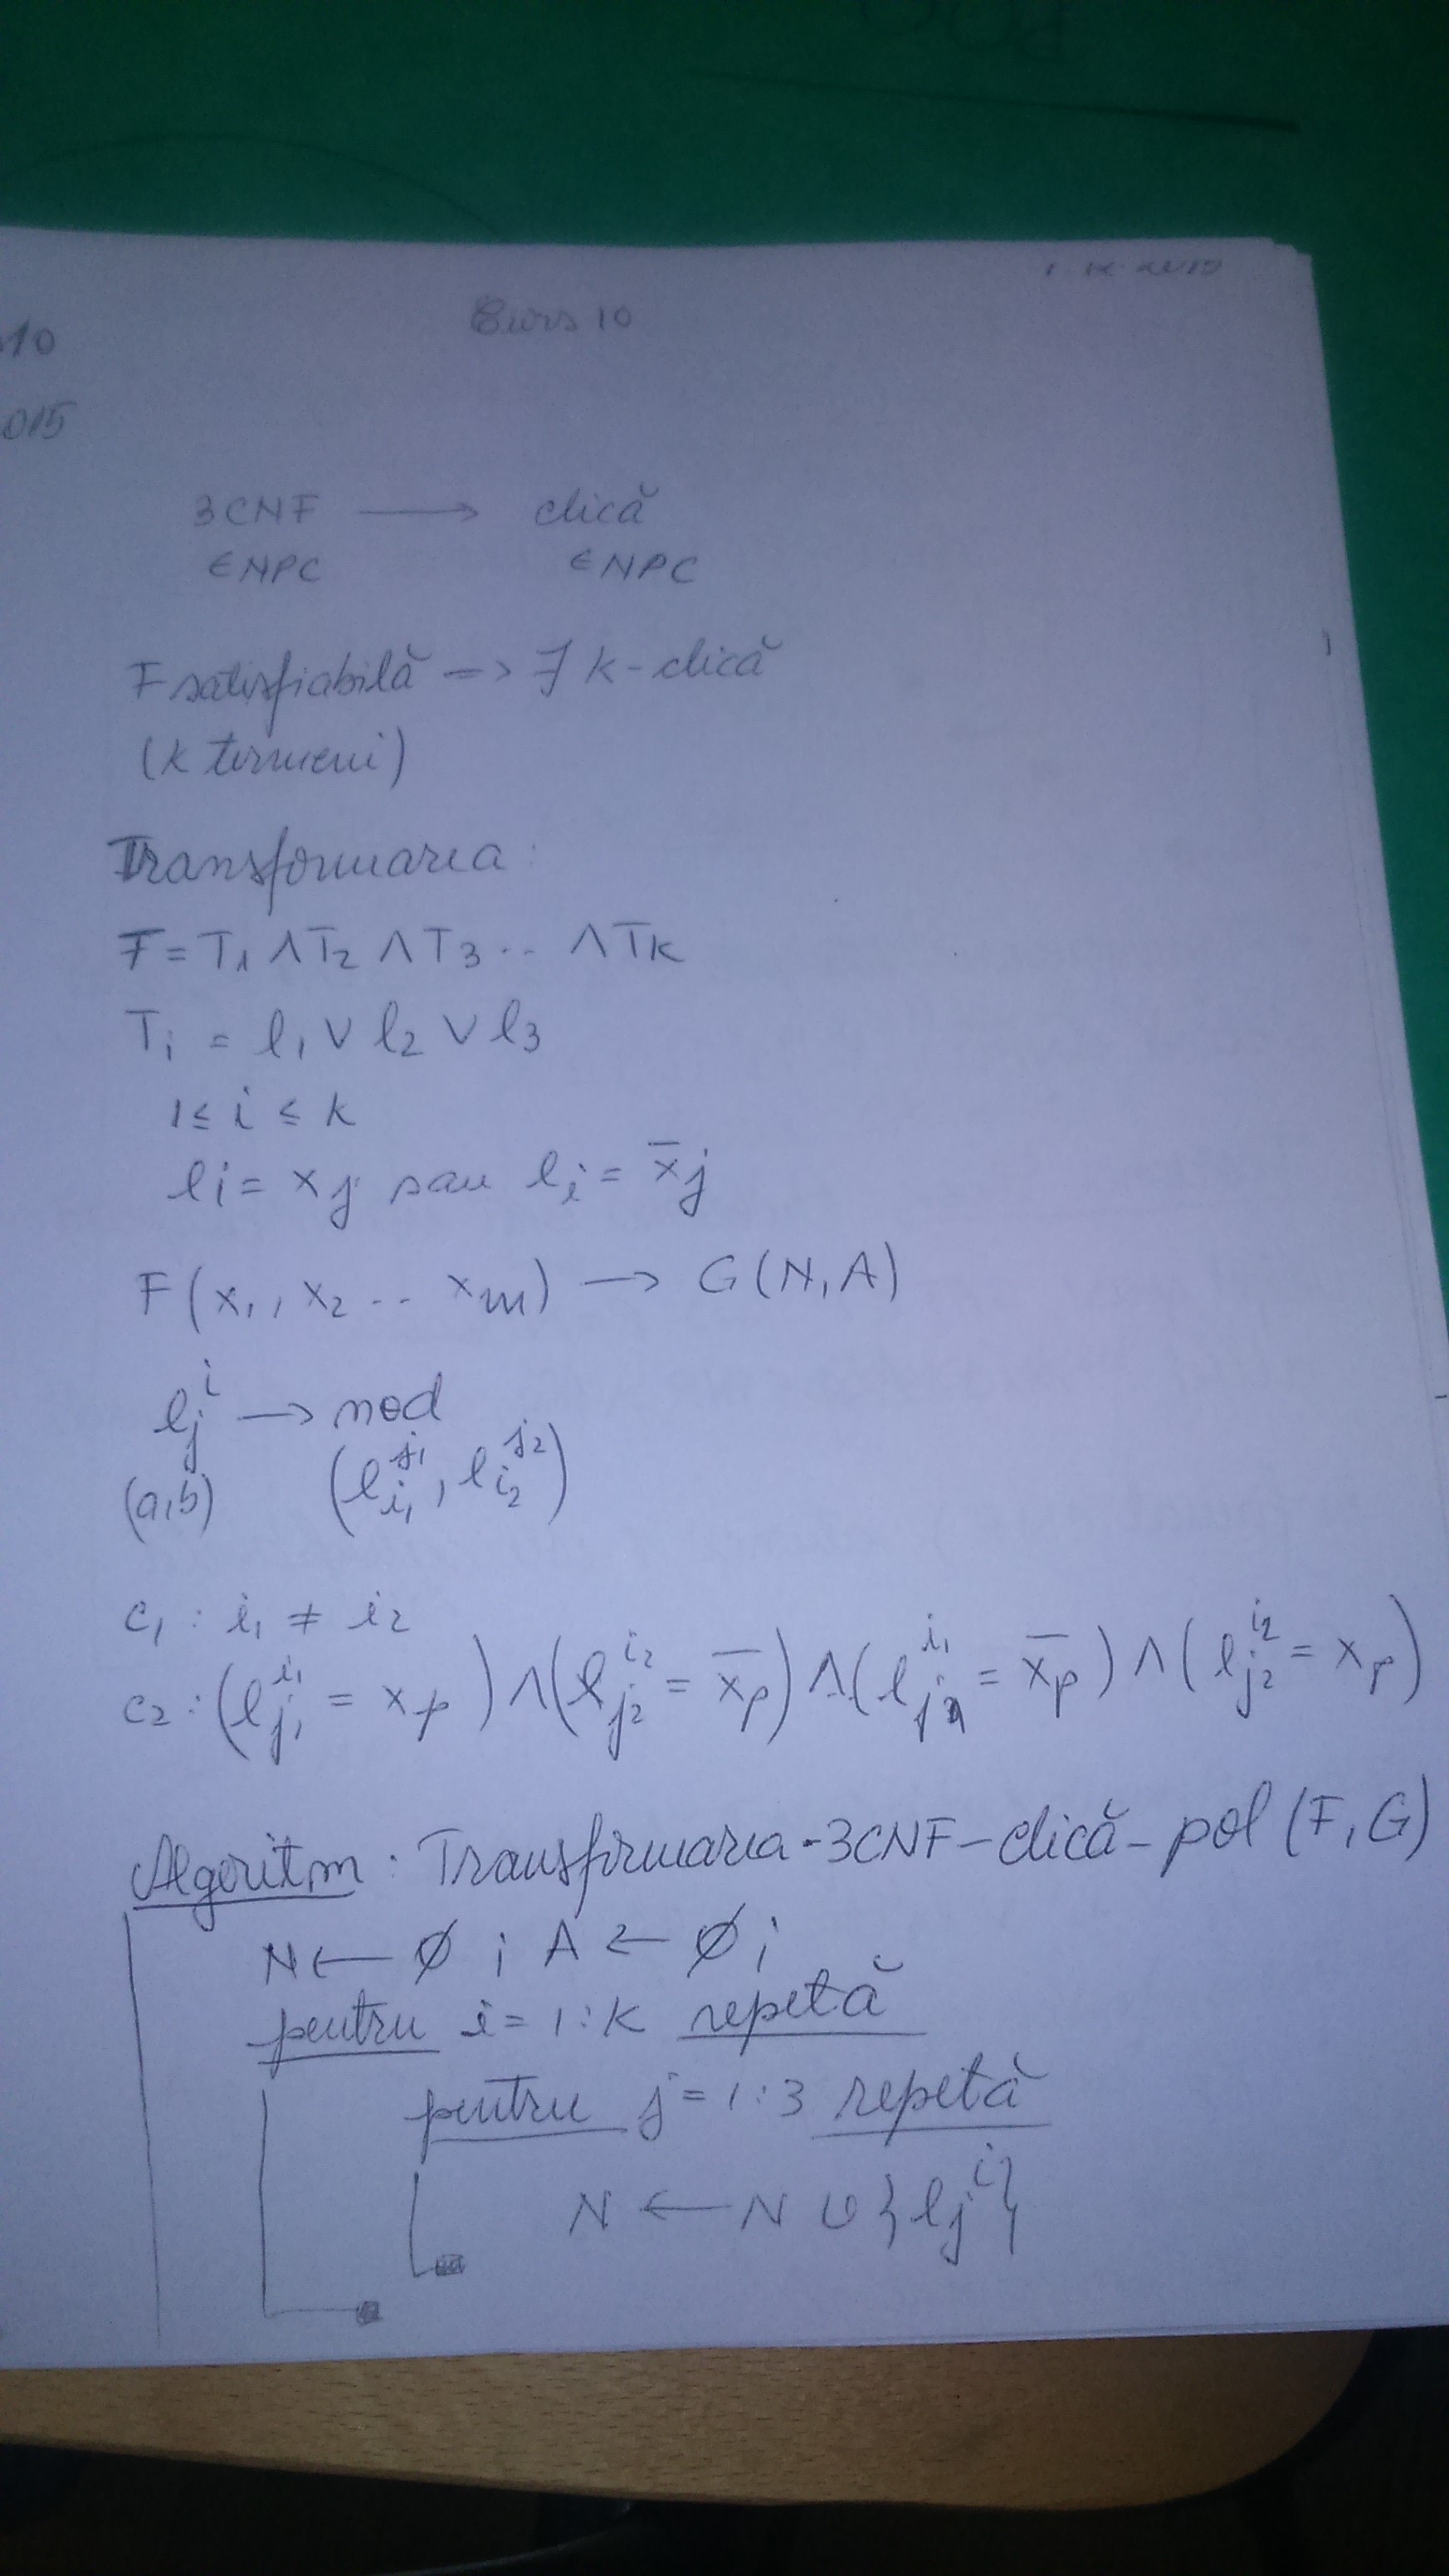 Curs 10
10
015
3CNF → clică
∈NPC ∈NPC
F satisfiabilă => ∃ k-clică
(k termeni)
Transformarea:
F = T1 ∧ T2 ∧ T3 .. ∧ Tk
Ti = l1 ∨ l2 ∨ l3
1 ≤ i ≤ k
li = xj sau li = x̄j
F(x1, x2 .. xm) → G(N, A)
l_j^i → nod
(a,b) (l_{i1}^{j1}, l_{i2}^{j2})
c1 : i1 ≠ i2
c2 : (l_{j1}^{i1} = xp) ∧ (l_{j2}^{i2} = x̄p) ∧ (l_{j1}^{i1} = x̄p) ∧ (l_{j2}^{i2} = xp)
Algoritm : Transformarea-3CNF-clică-pol (F, G)
N ← ∅ ; A ← ∅ ;
pentru i = 1:k repetă
pentru j = 1:3 repetă
N ← N ∪ {l_j^i}